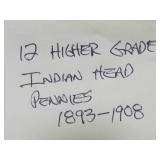 12 HIGHER GRADE
INDIAN HEAD
PENNIES
1893-1908